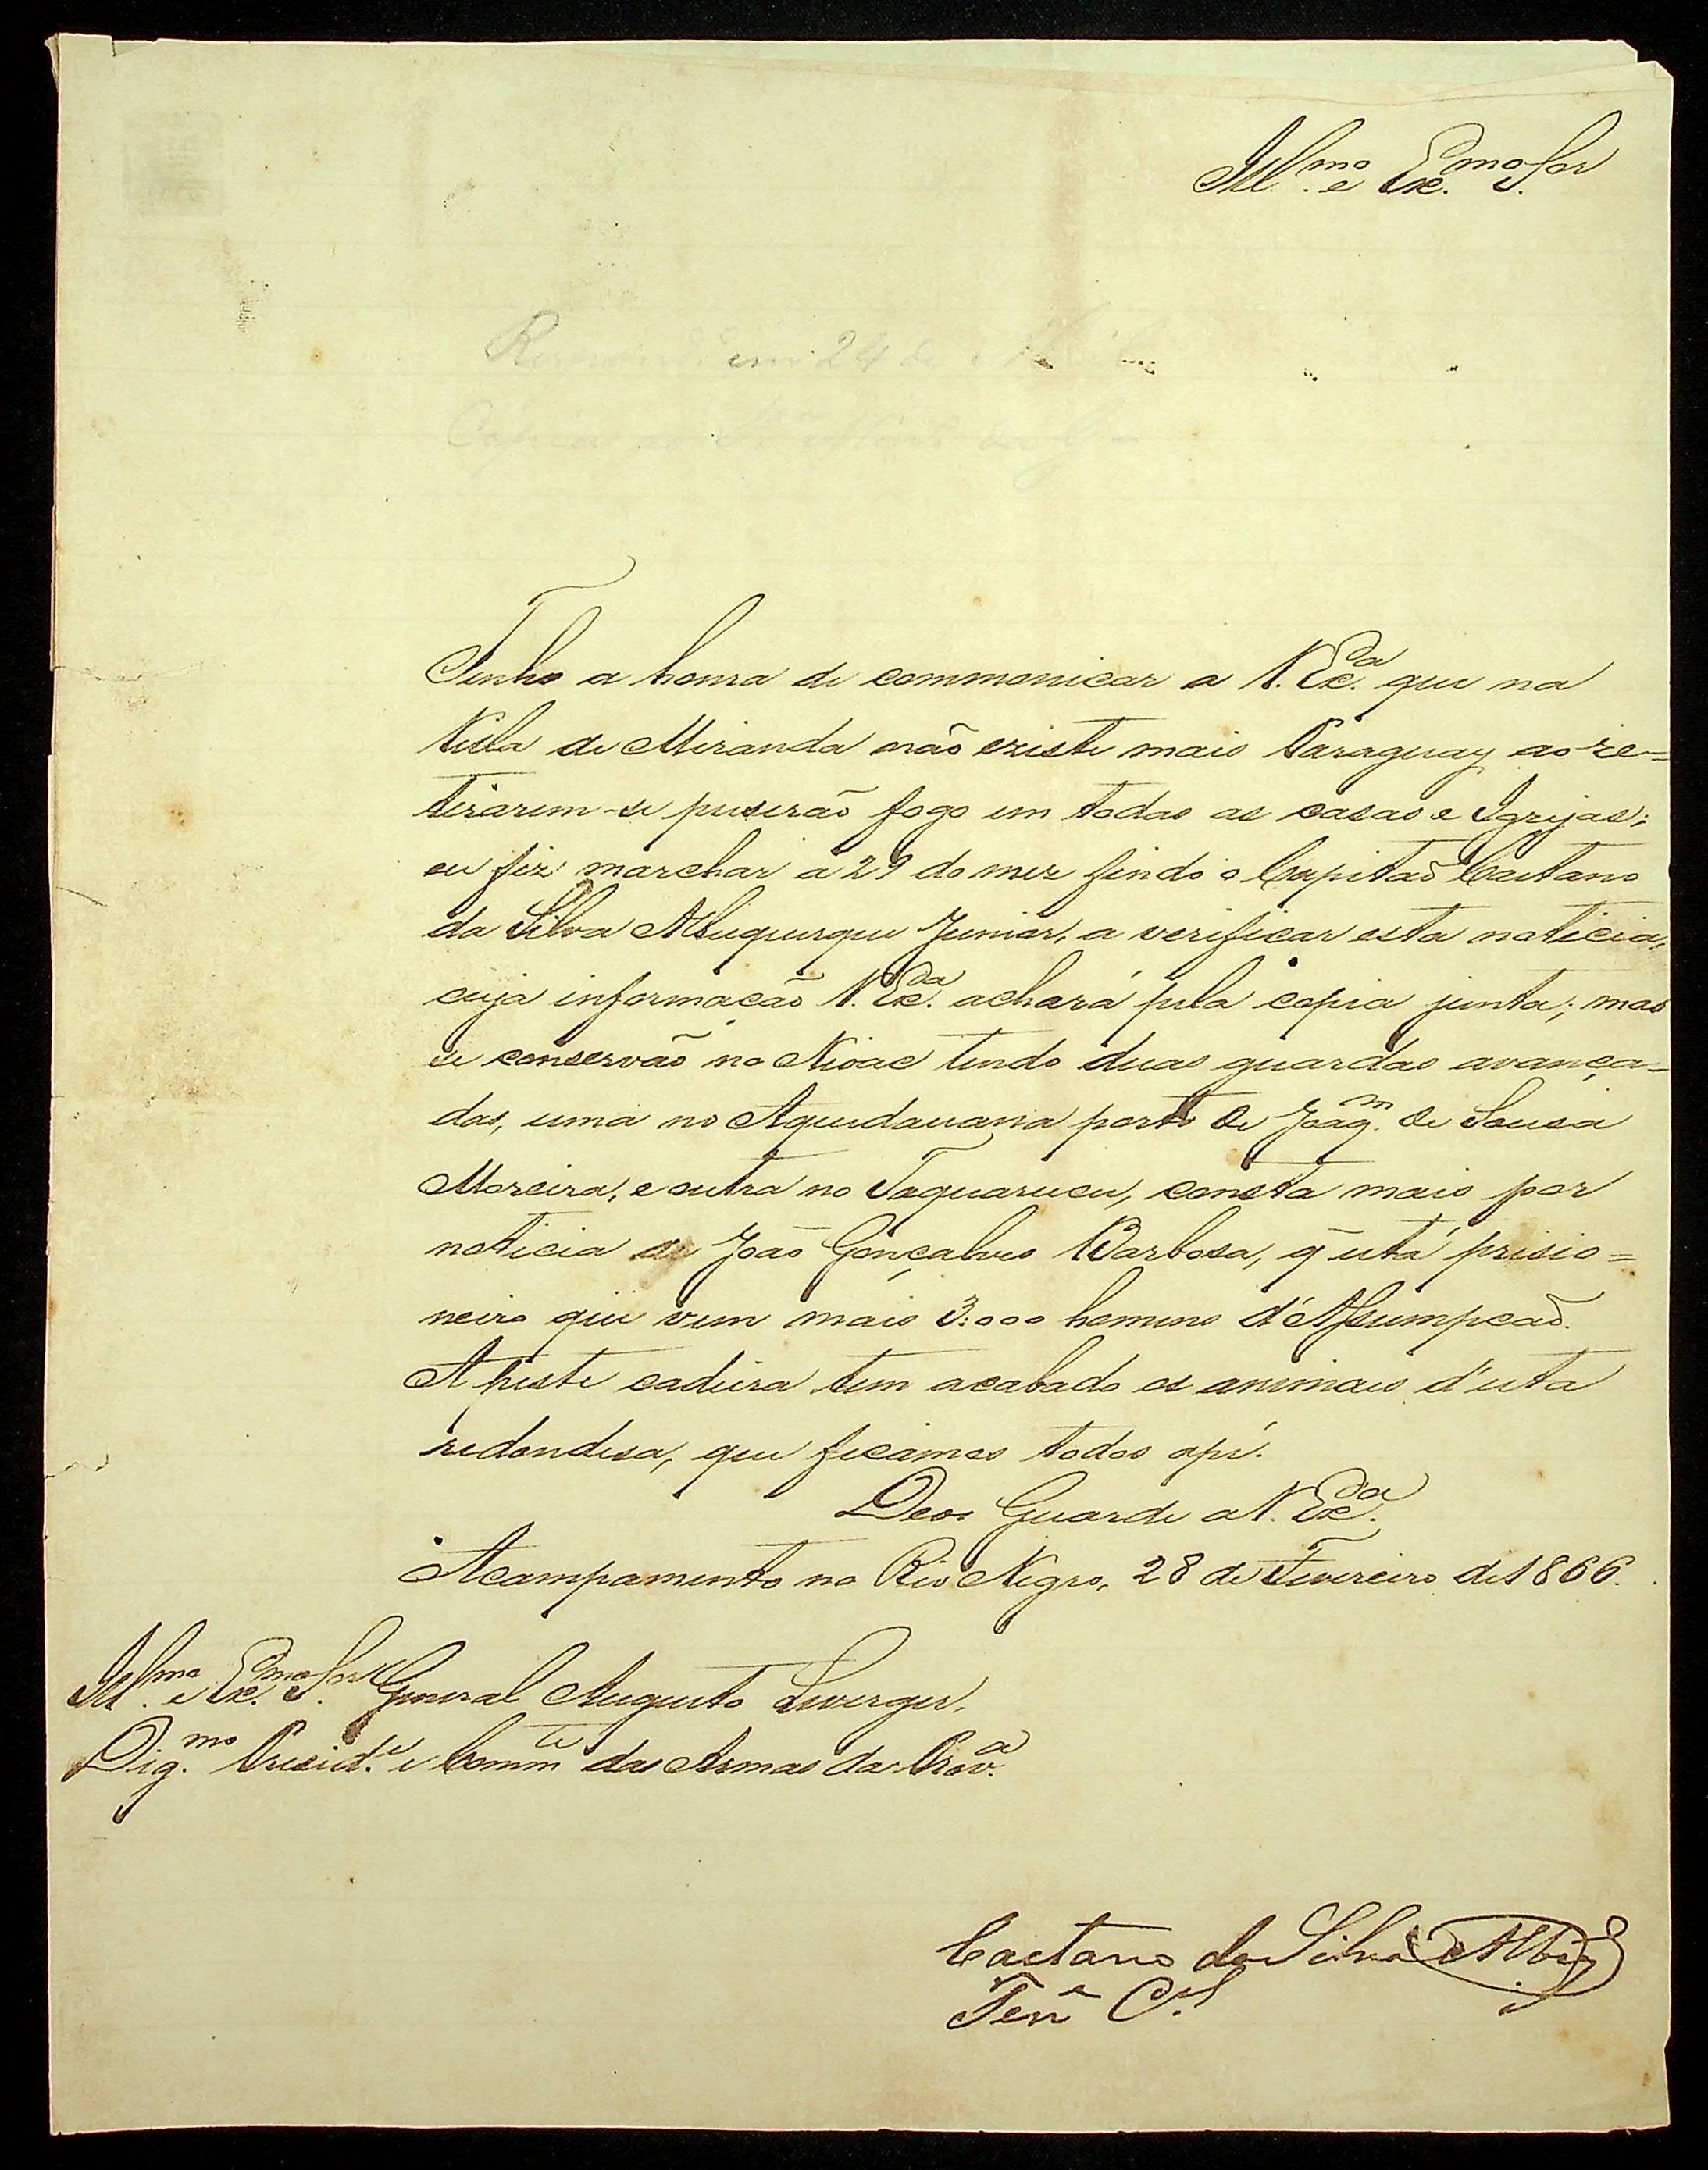 Ill.mo e Ex.mo Snr
em 24 de
Tenho a honra de commonicar a V. Ex.a que na
Villa de Miranda não existe mais Paraguay ao re=
tirarem-se puserão fogo em todas as casas e Igrejas;
eu fiz marchar a 29 do mez findo o Capitaõ Caetano
da Silva Albuquerque Junior, a verificar esta noticia,
cuja informação V. Ex.a achará pela copia junta; mas
se conservão no Nioac tendo duas guardas avança=
das, uma no Aquidauana porto de Joaq.m de Sousa
Moreira, e outra no Taquarucu, consta mais por
noticia de João Gonçalves Barbosa, q̃ está prisio=
neiro que vem mais 3:000 homens d'Assumpcaõ.
A peste cadeira tem acabado os animais d'esta
redondesa, que ficamos todos apé.
Deos Guarde a V. Ex.a
Acampamento no Rio Negro, 28 de Fevereiro de 1866.
Ill.mo e Ex.mo Snr General Augusto Leverger,
Dig.mo Presid.e e Comm.te das Armas da Prov.a
Caetano da Silva Albuq
Ten.e C.el